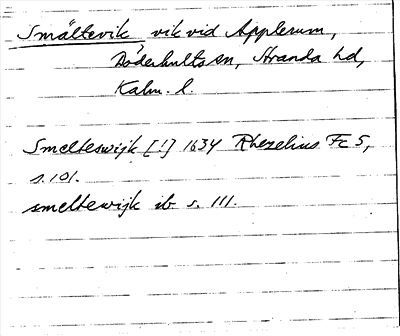 Smältevik vik vid Applerum,
Döderhults sn, Stranda hd,
Kalm. l.
Smelteswijk [!] 1634 Rhezelius Fc 5,
s. 101.
smeltewijk ib. s. 111.